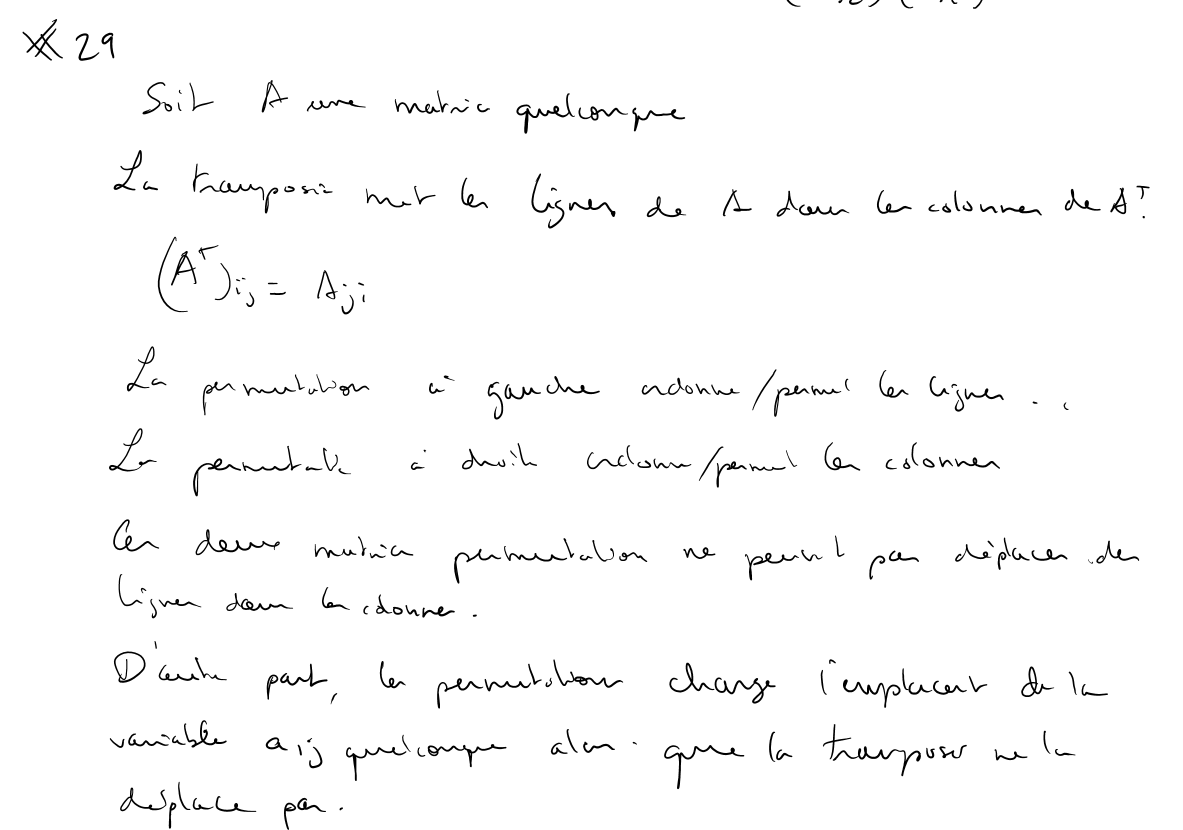 29
Soit A une matric quelconque
La transposé met les lignes de A dans les colonnes de Aᵀ.
(Aᵀ)ij = Aji
La permutation à gauche ordonne/permut les lignes.
La à droite ordonne/permut les colonnes
Ces deux matrice permutation ne peuvent pas déplacer des
lignes dans les colonnes.
D'autre part, les permutations change l'emplacent de la
variable aij quelconque alors que la transposer ne la
déplace pas.